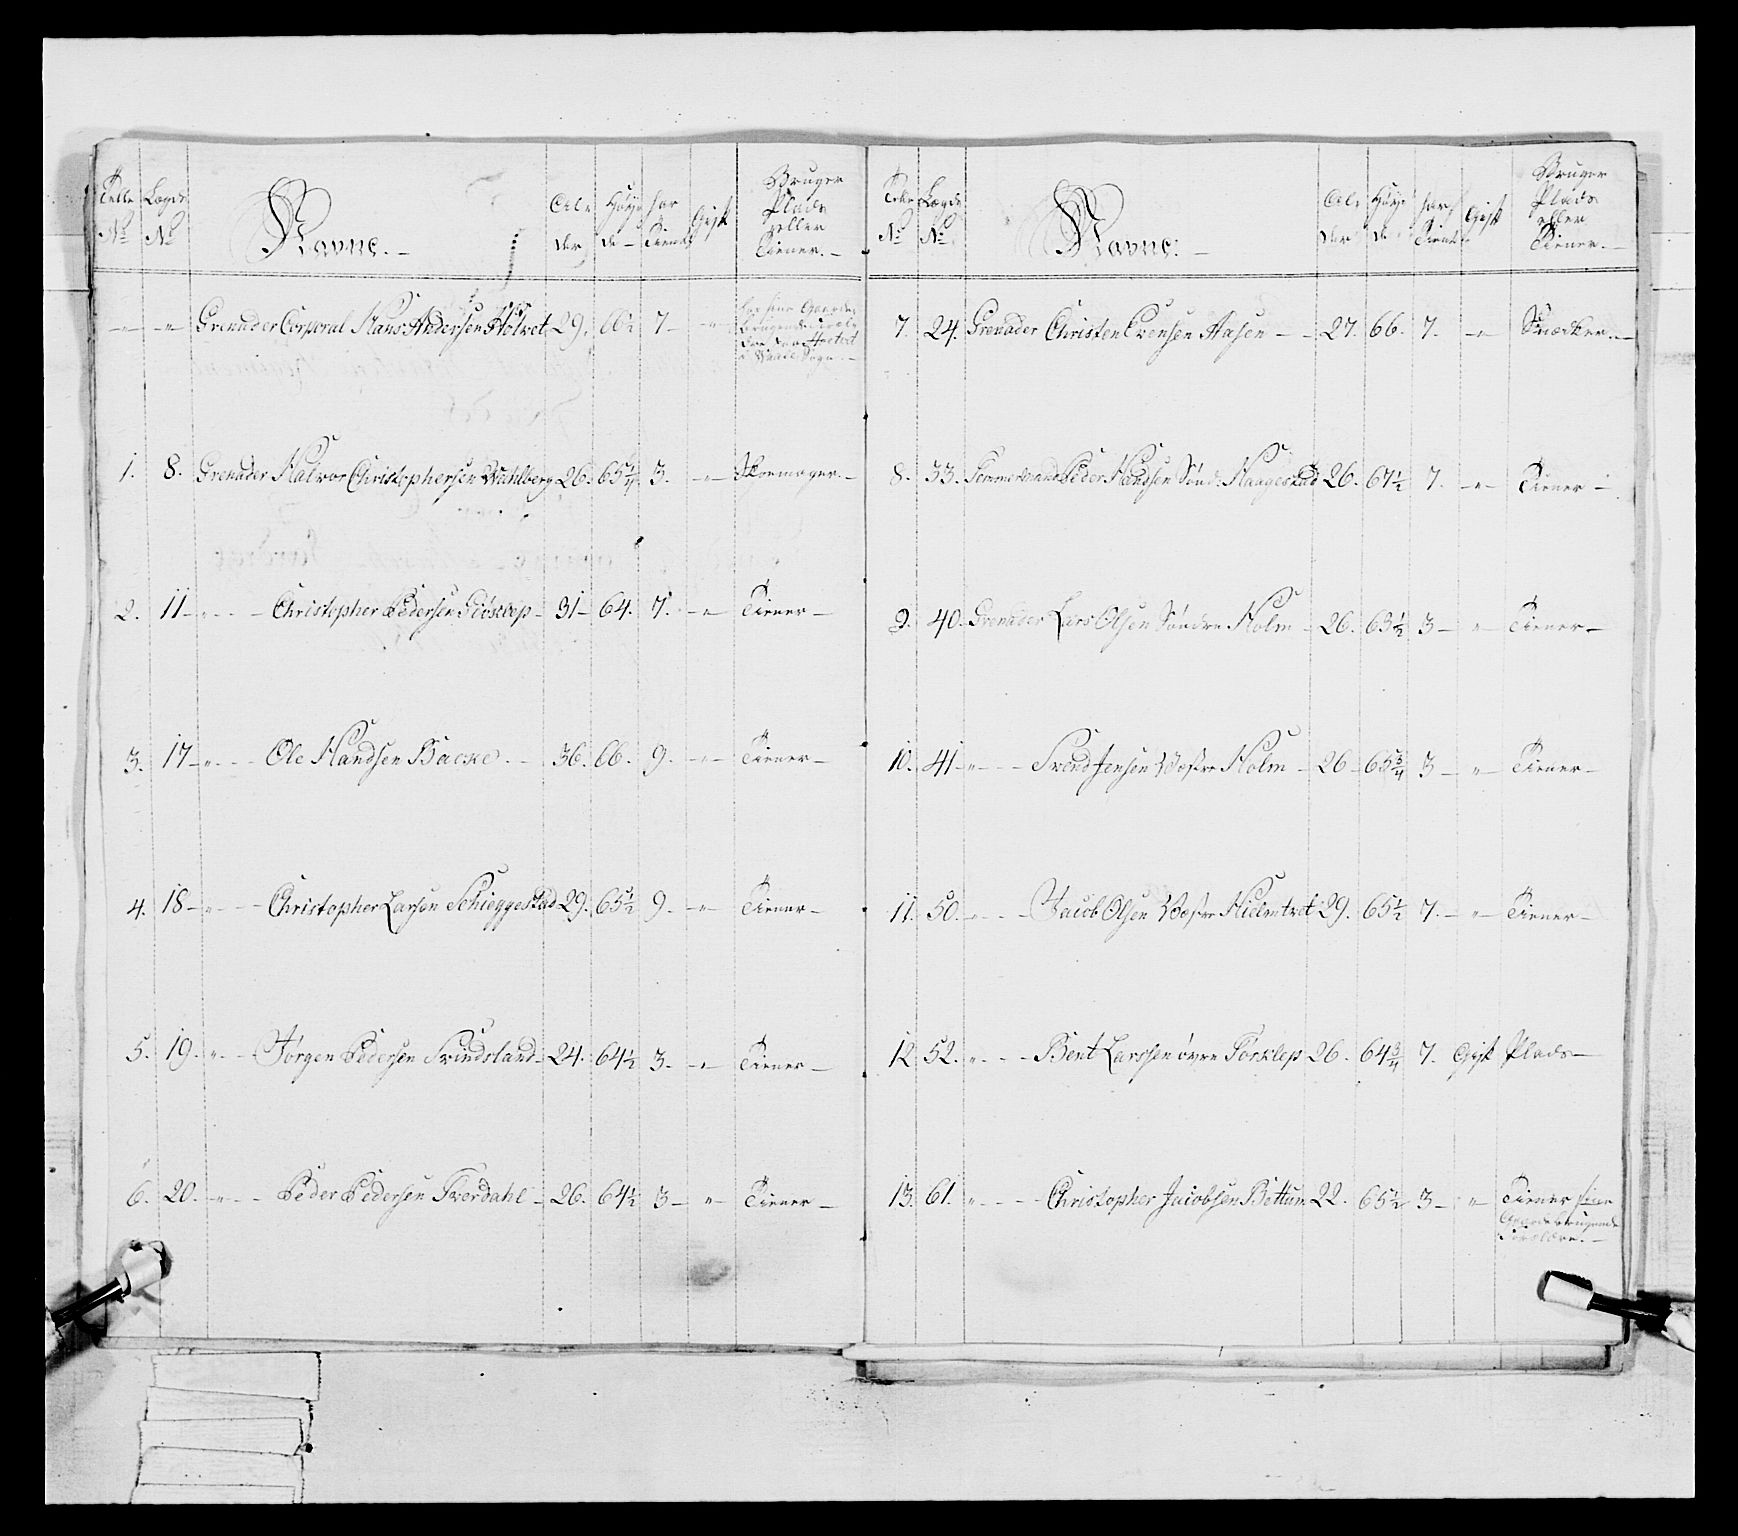 Telle Nº Lægds Nº Navne. Alder Høyde har Tient Gift Bruger Plads eller Tiener.
" " Grenadeer Corporal Hans Andersen Holtet 29. 66 7 "
1. 8. Grenadeer Halvor Christophersen Wahlberg 26. 65 1/4 3. " Skoemager.
2. 11 " Christopher Pedersen 31 64. 7. " Tiener
3. 17 " Ole Handsen Backe. 36. 66. 9. " Tiener
4. 18 " Christopher Larsen Schieggestad 29. 65 1/2 9. " Tiener
5. 19. " Jørgen Pedersen Svindsland 24. 64 1/2 3. " Tiener
6. 20. " Peder Pedersen Tverdahl 26. 64 1/2 3 " Tiener
Telle Nº Lægds Nº Navne. Alder Høyde har Tient Gift Bruger Plads eller Tiener.
7. 24. Grenadeer Christen Evensen Aasen 27. 66. 7. " Snedker.
8. 33. Tømmermand Peder Handsen Sønd. Haagestad 26. 67 1/2 7. " Tiener
9. 40. Grenadeer Lars Olsen Søndre Holm 26. 63 1/2 3 " Tiener
10. 41 " Svend Jensen Væstre Holm 26 65 3/4 3 " Tiener
11. 50. " Jacob Olsen Væstre Hielmtvet 29. 65 1/2 7. " Tiener
12 52. " Bent Larssen øvre Forklep 26. 64 3/4 7. Gift Plads
13. 61. " Christopher Jacobsen Bettum 22. 65 1/2 3 " Tiener sine
Gaardebrugende
Forældre.